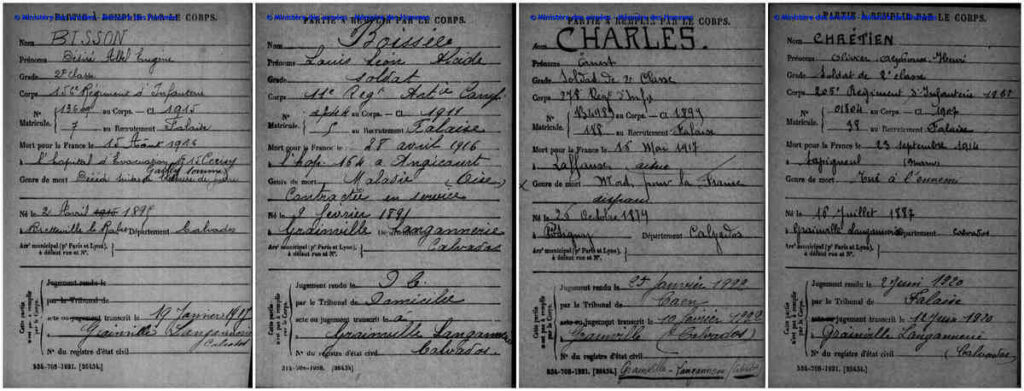 © Ministère des armées - Mémoire des Hommes
PARTIE À REMPLIR PAR LE CORPS.
Nom BISSON
Prénoms Désiré Eugène
Grade 2e Classe
Corps Régiment d'Infanterie
N° au Corps. — Cl. 1915
Matricule. 7 au Recrutement Falaise
Mort pour la France le 15 Août 1916
à l'hôpital d'Evacuation Cerisy
Gailly Somme
Genre de mort Décédé suites de blessures de guerre
Né le 2 Avril
à Bretteville le Rabet Département Calvados
Arrt municipal (pr Paris et Lyon),
à défaut rue et N°.
Cette partie n'est pas à remplir par le Corps.
Jugement rendu le
par le Tribunal de
acte ou jugement transcrit le 19 Janvier 1917
à Grainville Langannerie
Calvados
N° du registre d'état civil
534-708-1921. [26434.]
© Ministère des armées - Mémoire des Hommes
PARTIE À REMPLIR PAR LE CORPS.
Nom Boissée
Prénoms Louis Léon
Grade soldat
Corps 11e Regt
N° au Corps. — Cl. 1911
Matricule. 5 au Recrutement Falaise
Mort pour la France le 28 avril 1916
à l'hop. 164 à Angicourt
(Oise)
Genre de mort Maladie
Contractée en service
Né le février
à Grainville Langannerie
Calvados
Arrt municipal (pr Paris et Lyon),
à défaut rue et N°.
Cette partie n'est pas à remplir par le Corps.
Jugement rendu le
par le Tribunal de Domicilié
acte ou jugement transcrit le à
à Grainville Langannerie
Calvados.
N° du registre d'état civil
PARTIE À REMPLIR PAR LE CORPS.
Nom CHARLES.
Prénoms Ernest
Grade Soldat de 2e Classe
Corps 278 Reg d'Infie
N° au Corps. — Cl. 1899
Matricule. au Recrutement Falaise
Mort pour la France le 15 Mai 1917
à Laffaux aisne
Genre de mort Mort pour la France
disparu
Né le 26 Octobre 1879
à Département Calvados
Arrt municipal (pr Paris et Lyon),
à défaut rue et N°.
Cette partie n'est pas à remplir par le Corps.
Jugement rendu le 25 Janvier 1922
par le Tribunal de Caen
acte ou jugement transcrit le 10 février 1922
à Grainville (Calvados)
N° du registre d'état civil
534-708-1921. [26434.] Grainville - Langannerie
PARTIE À REMPLIR PAR LE CORPS.
Nom CHRÉTIEN
Prénoms Olivier Alphonse Henri
Grade Soldat de 2e classe
Corps 205e Régiment d'Infanterie
N° 01804 au Corps. — Cl. 1907
Matricule. 98 au Recrutement Falaise
Mort pour la France le 23 septembre 1914
à Sapigneul (Marne)
Genre de mort Tué à l'ennemi
Né le 16 Juillet 1887
à Grainville Langannerie Département Calvados
Arrt municipal (pr Paris et Lyon),
à défaut rue et N°.
Cette partie n'est pas à remplir par le Corps.
Jugement rendu le 2 Juin 1920
par le Tribunal de Falaise
acte ou jugement transcrit le 11 Juin 1920
à Grainville Langannerie
(Calvados)
N° du registre d'état civil
534-708-1921. [26434.]